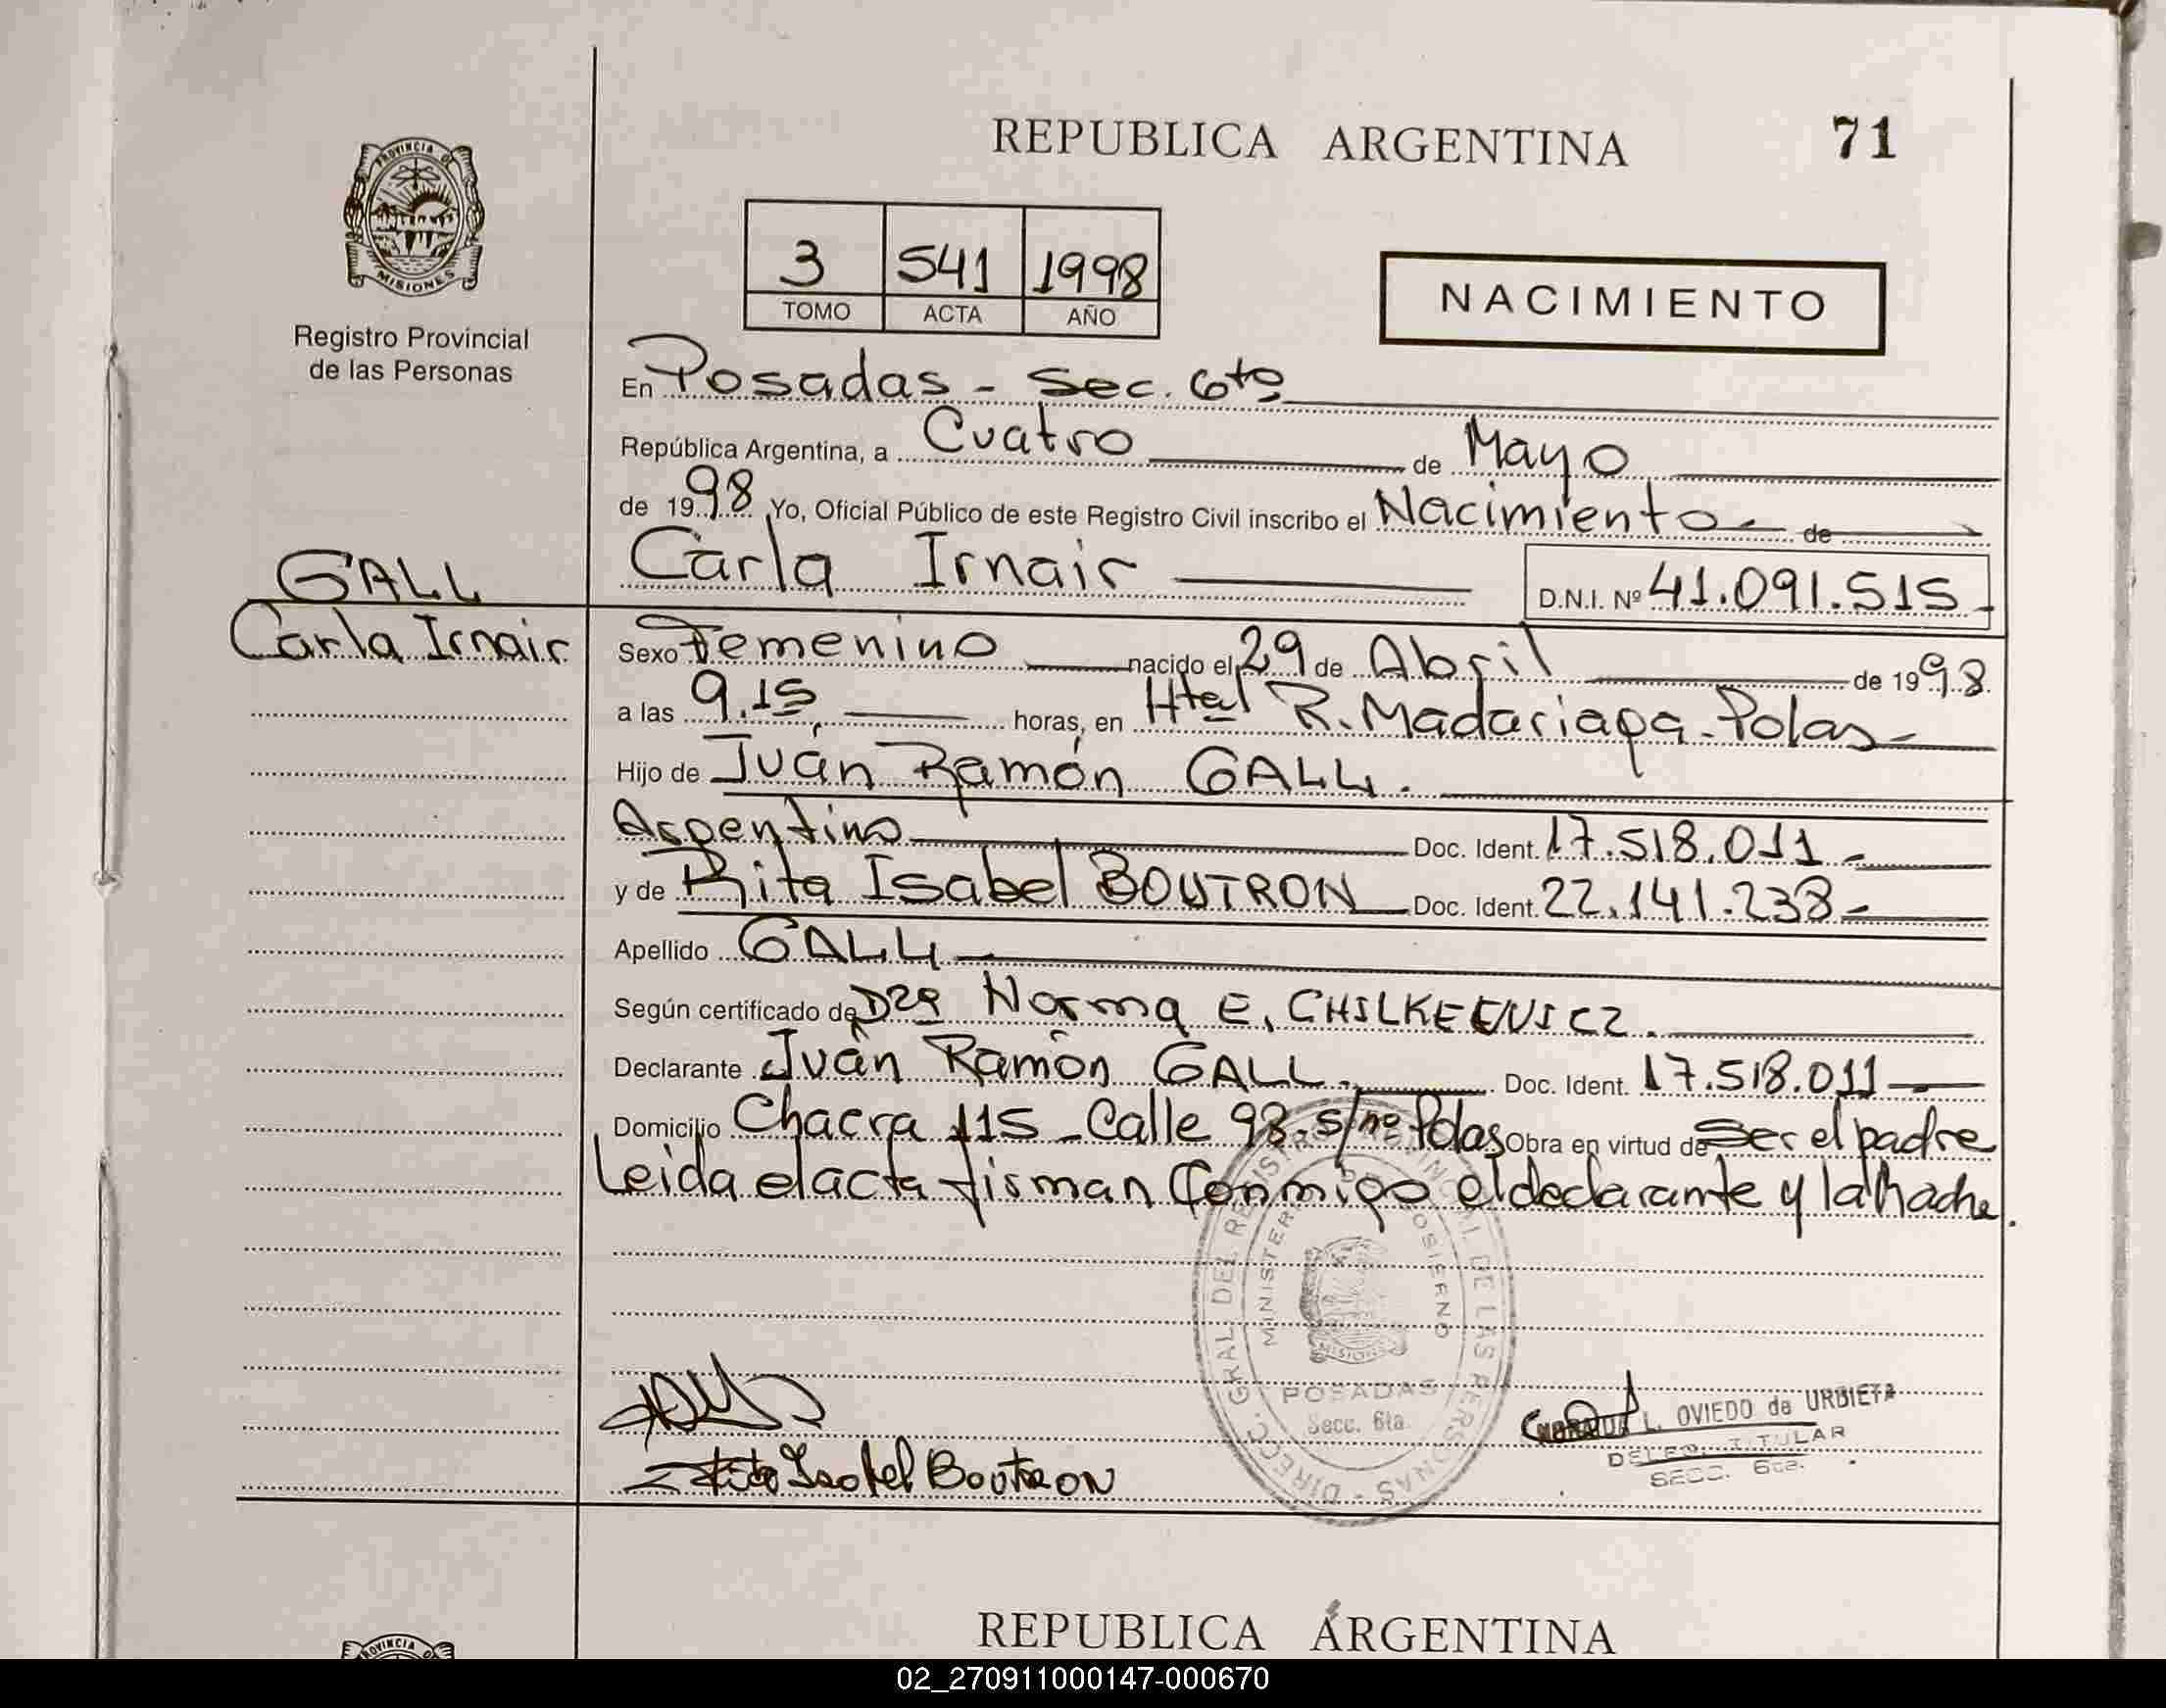 REPUBLICA ARGENTINA 71
PROVINCIA DE
MISIONES
Registro Provincial
de las Personas
3 541 1998
TOMO ACTA AÑO
NACIMIENTO
En Posadas - Sec. 6ta
República Argentina, a Cuatro de Mayo
de 1998 Yo, Oficial Público de este Registro Civil inscribo el Nacimiento - de
Carla Irnair
D.N.I. Nº 41.091.515
GALL
Carla Irnair
Sexo Femenino nacido el 29 de Abril de 1998
a las 9.15 horas, en Htal R. Madariaga - Pdas -
Hijo de Juán Ramón GALL.
Argentino Doc. Ident. 17.518.011 -
y de Rita Isabel BOUTRON Doc. Ident. 22.141.238 -
Apellido GALL
Según certificado de Dra Norma E.
Declarante Juán Ramón GALL. Doc. Ident. 17.518.011
Domicilio Chacra 115 - Calle 98 - s/nº Pdas Obra en virtud de Ser el padre
Leida el acta firman Conmigo el declarante y la Madre.
DIRECC. GRAL. DEL REGISTRO PROVINCIAL DE LAS PERSONAS
MINISTERIO DE GOBIERNO
MISIONES
POSADAS
Secc. 6ta.
L. OVIEDO de URBIETA
DELEG. TITULAR
SECC. 6ta.
Rita Isabel Boutron
REPUBLICA ARGENTINA
PROVINCIA
02_270911000147-000670